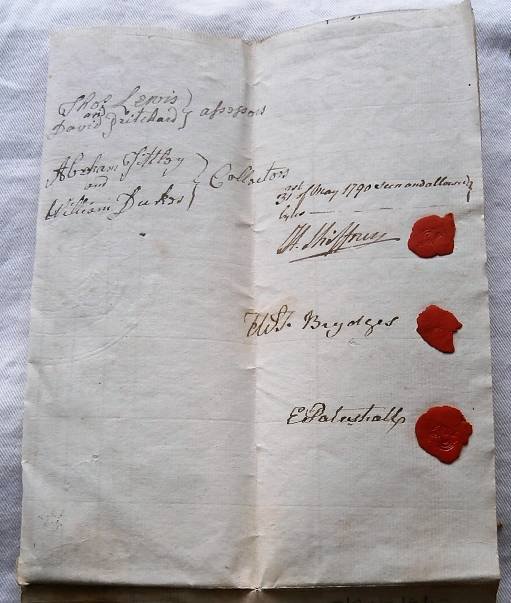 Thos Lewis
and
David Pritchard } assessors
Abraham
and
William Dukes } Collectors
31st of May 1790 seen and allowed
by us
Brydges
E Pateshall